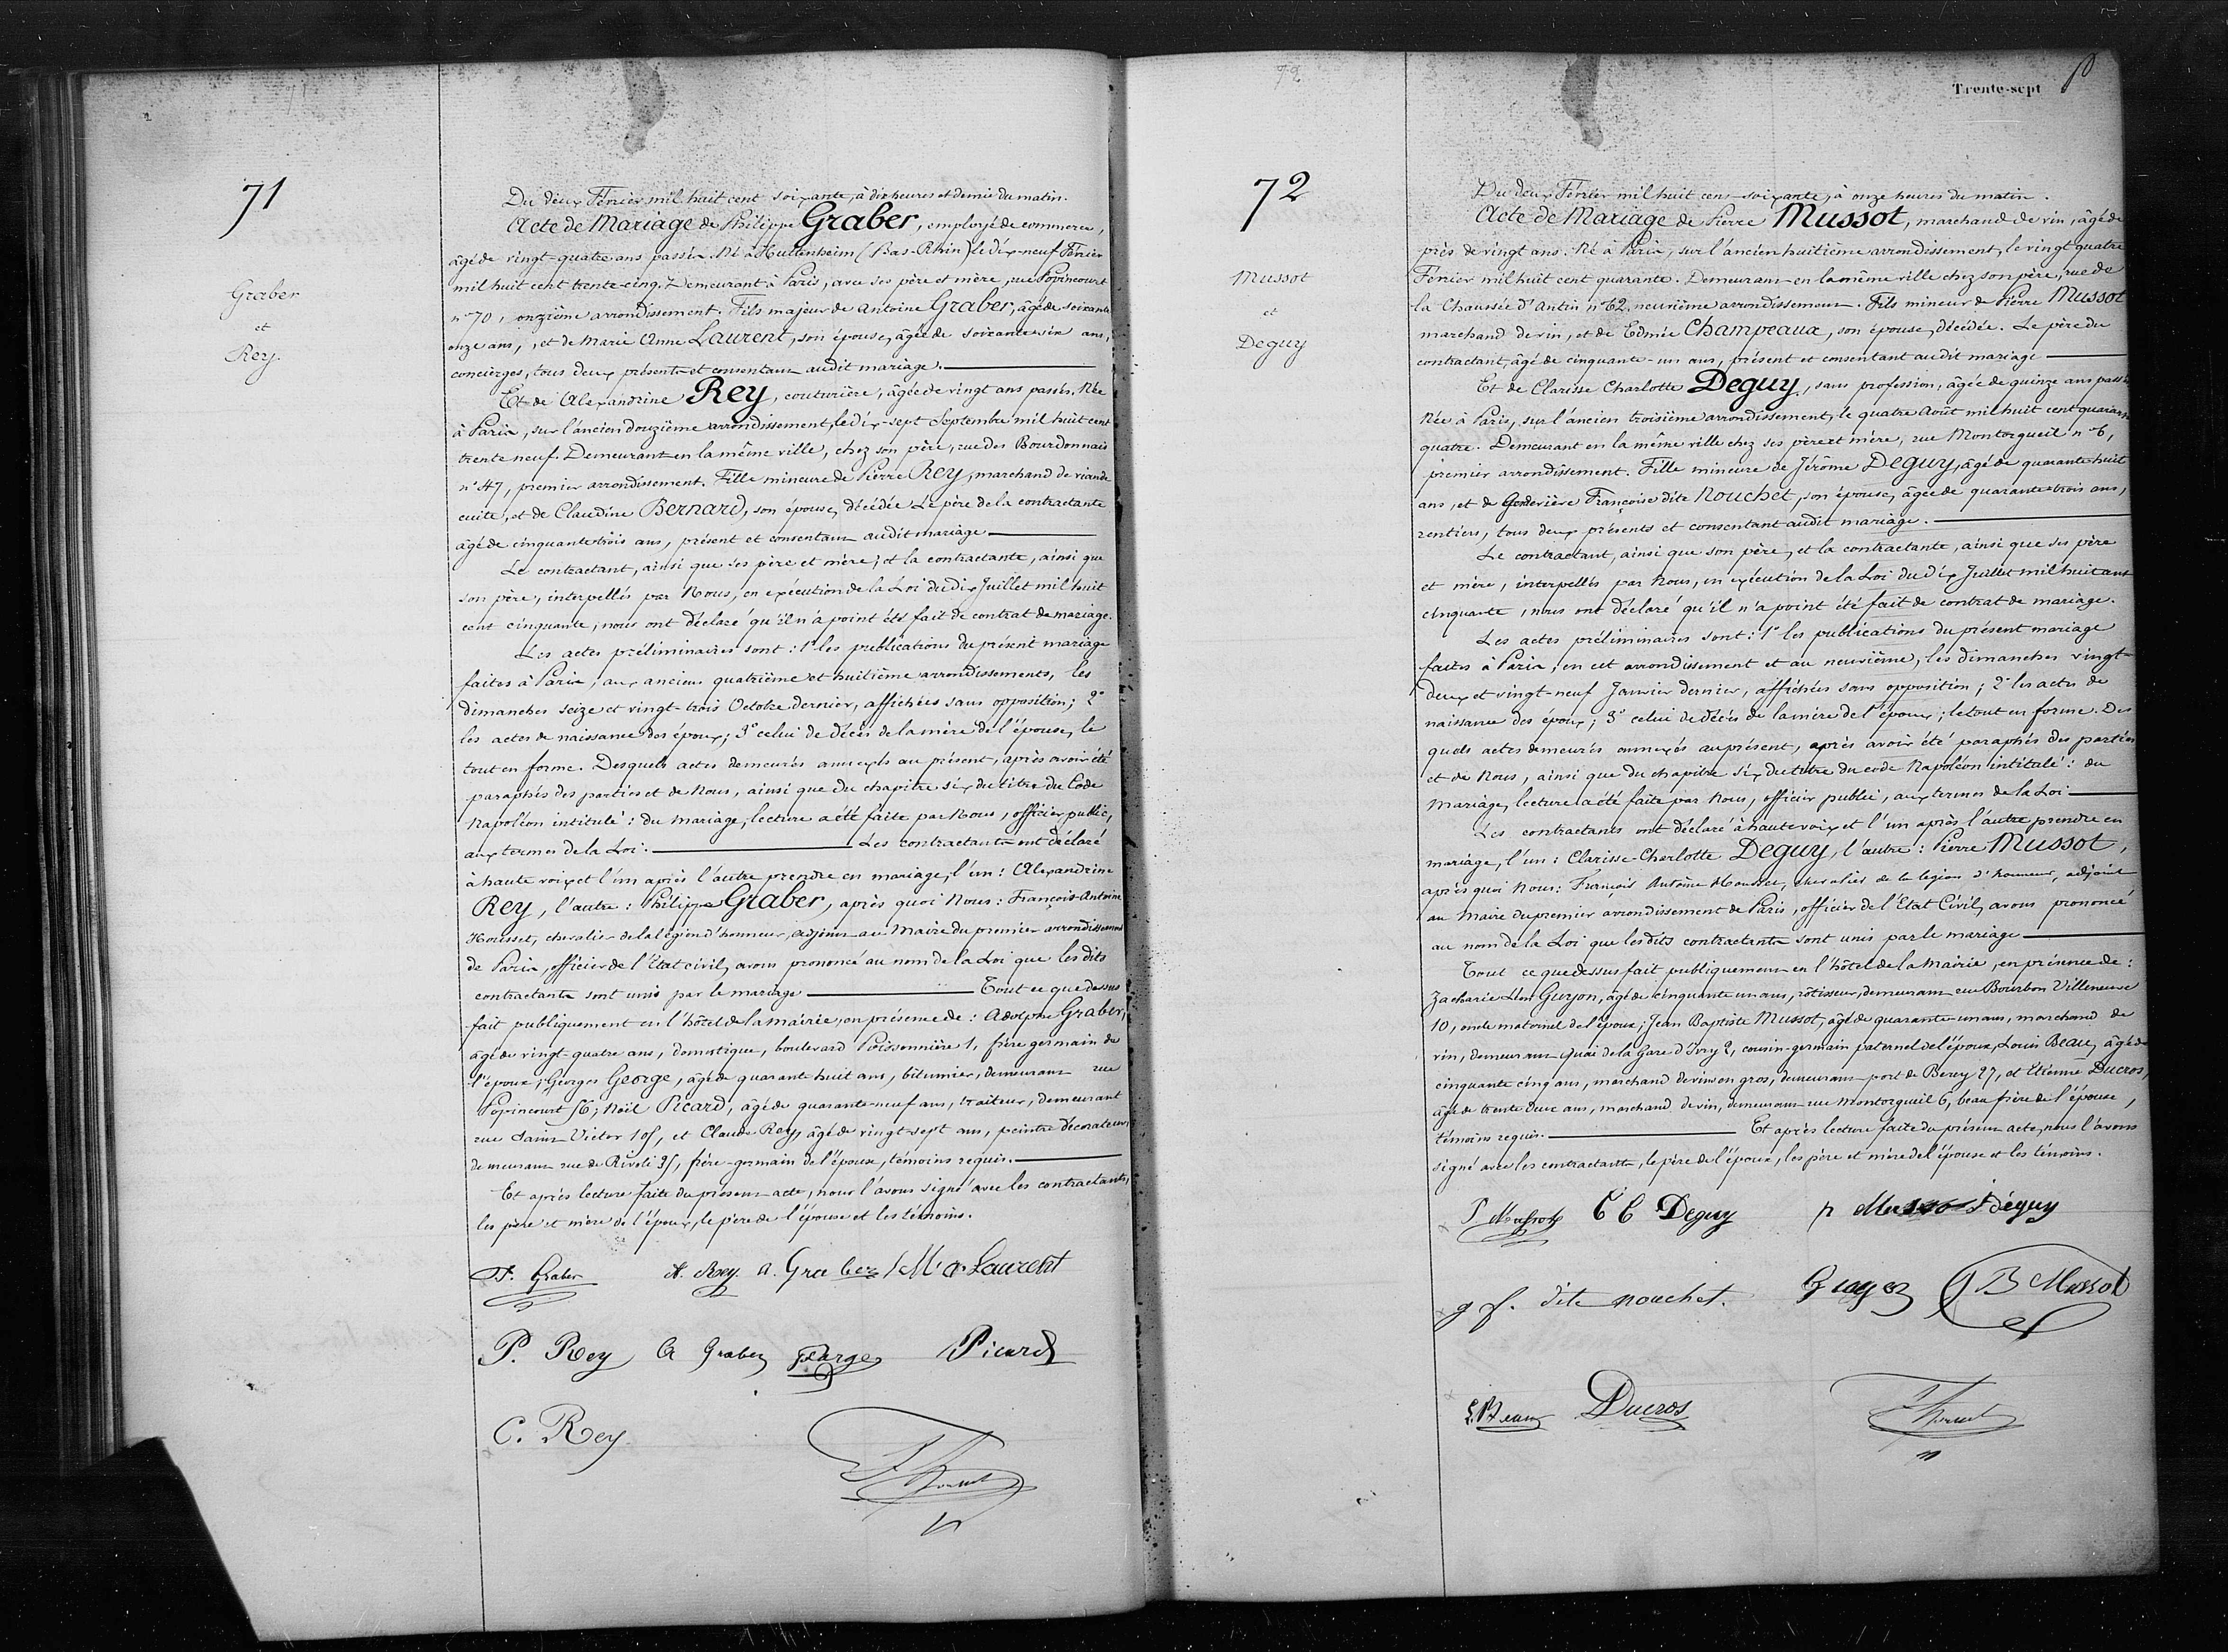 71
71
Graber
et
Rey.
Du deux Février mil huit cent soixante, à dix heures et demie du matin.
Acte de Mariage de Philippe Graber, employé de commerce,
âgé de vingt-quatre ans passés. Né à Huttenheim (Bas-Rhin) le dix-neuf Février
mil huit cent trente-cinq. Demeurant à Paris, avec ses père et mère, rue Popincourt
n° 70, onzième arrondissement. Fils majeur de Antoine Graber, âgé de soixante
onze ans, et de Marie Anne Laurent, son épouse, âgée de soixante six ans,
concierges, tous deux présents et consentant audit mariage.
Et de Alexandrine Rey, couturière, âgée de vingt ans passés. Née
à Paris, sur l'ancien douzième arrondissement, le dix-sept Septembre mil huit cent
trente neuf. Demeurant en la même ville, chez son père, rue des Bourdonnais
n° 47, premier arrondissement. Fille mineure de Pierre Rey, marchand de viande
cuite, et de Claudine Bernard, son épouse, décédée. Le père de la contractante
âgé de cinquante trois ans, présent et consentant audit mariage
Le contractant, ainsi que ses père et mère; et la contractante, ainsi que
son père, interpellés par Nous, en exécution de la Loi du dix Juillet mil huit
cent cinquante, nous ont déclaré qu'il n'a point été fait de contrat de mariage.
Les actes préliminaires sont: 1° les publications du présent mariage
faites à Paris, aux anciens quatrième et huitième arrondissements, les
dimanches seize et vingt-trois Octobre dernier, affichées sans opposition; 2°
les actes de naissance des époux; 3° celui de décès de la mère de l'épouse, le
tout en forme. Desquels actes demeurés annexés au présent, après avoir été
paraphés des parties et de Nous, ainsi que du chapitre six du titre du Code
Napoléon intitulé: du Mariage, lecture a été faite par Nous, officier public,
aux termes de la Loi. Les contractants ont déclaré
à haute voix et l'un après l'autre prendre en mariage, l'un: Alexandrine
Rey, l'autre: Philippe Graber, après quoi Nous: François-Antoine
Housset, chevalier de la légion d'honneur, adjoint au Maire du premier arrondissement
de Paris, officier de l'Etat civil, avons prononcé au nom de la Loi que les dits
contractants sont unis par le mariage Tout ce que dessus
fait publiquement en l'hôtel de la mairie, en présence de: Adolphe Graber,
âgé de vingt-quatre ans, domestique, boulevard Poissonnière 1, frère germain de
l'époux; Georges George, âgé de quarante huit ans, bitumier, demeurant rue
Popincourt 56; Noël Picard, âgé de quarante-neuf ans, traiteur, demeurant
rue Saint Victor 105, et Claude Rey, âgé de vingt-sept ans, peintre décorateur,
demeurant rue de Rivoli 35, frère-germain de l'épouse, témoins requis.
Et après lecture faite du présent acte, nous l'avons signé avec les contractants,
les père et mère de l'époux, le père de l'épouse et les témoins.
P. Graber A. Rey. A. Graber M. A. Laurent
P. Rey A Graber Picard
C. Rey
72
Trente-sept
72
Mussot
et
Deguy
Du deux Février mil huit cent soixante, à onze heures du matin.
Acte de Mariage de Pierre Mussot, marchand de vin, âgé de
près de vingt ans. Né à Paris, sur l'ancien huitième arrondissement, le vingt quatre
Février mil huit cent quarante. Demeurant en la même ville chez son père, rue de
la Chaussée d'Antin n° 62, neuvième arrondissement. Fils mineur de Pierre Mussot
marchand de vin, et de Edmée Champeaux, son épouse, décédée. Le père du
contractant, âgé de cinquante-un ans, présent et consentant audit mariage
Et de Clarisse Charlotte Deguy, sans profession, âgée de quinze ans passés
Née à Paris, sur l'ancien troisième arrondissement, le quatre Août mil huit cent quarante
quatre. Demeurant en la même ville chez ses père et mère, rue Montorgueil n° 6,
premier arrondissement. Fille mineure de Jérôme Deguy, âgé de quarante huit
ans, et de Geneviève Françoise dite Nouchet, son épouse, âgée de quarante trois ans,
rentiers, tous deux présents et consentant audit mariage.
Le contractant, ainsi que son père, et la contractante, ainsi que ses père
et mère, interpellés par Nous, en exécution de la Loi du dix Juillet mil huit cent
cinquante, nous ont déclaré qu'il n'a point été fait de contrat de mariage.
Les actes préliminaires sont: 1° les publications du présent mariage
faites à Paris, en cet arrondissement et au neuvième, les dimanches vingt-
deux et vingt-neuf Janvier dernier, affichées sans opposition; 2° les actes de
naissance des époux; 3° celui de décès de la mère de l'époux; le tout en forme. Des
quels actes demeurés annexés au présent, après avoir été paraphés des parties
et de Nous, ainsi que du chapitre six du titre du code Napoléon intitulé: du
Mariage, lecture a été faite par Nous, officier public, aux termes de la Loi
Les contractants ont déclaré à haute voix et l'un après l'autre prendre en
mariage, l'un: Clarisse-Charlotte Deguy, l'autre: Pierre Mussot,
après quoi Nous: François Antoine Housset, chevalier de la légion d'honneur, adjoint
au Maire du premier arrondissement de Paris, officier de l'Etat Civil, avons prononcé
au nom de la Loi que lesdits contractants sont unis par le mariage
Tout ce que dessus fait publiquement en l'hôtel de la Mairie, en présence de:
Zacharie Léon Guyon, âgé de cinquante un ans, rôtisseur, demeurant rue Bourbon Villeneuve
10, oncle maternel de l'époux; Jean Baptiste Mussot, âgé de quarante-un ans, marchand de
vin, demeurant quai de la Gare d'Ivry 2, cousin-germain paternel de l'époux, Louis Beau, âgé de
cinquante cinq ans, marchand de vins en gros, demeurant port de Bercy 27, et Etienne Ducros,
âgé de trente deux ans, marchand de vin, demeurant rue Montorgueil 6, beau frère de l'épouse,
témoins requis. Et après lecture faite du présent acte, nous l'avons
signé avec les contractants, le père de l'époux, les père et mère de l'épouse et les témoins.
P Mussot C C Deguy p Mussot Déguy
g f. dite nouchet. Guyon J B Mussot
L. Beau Ducros